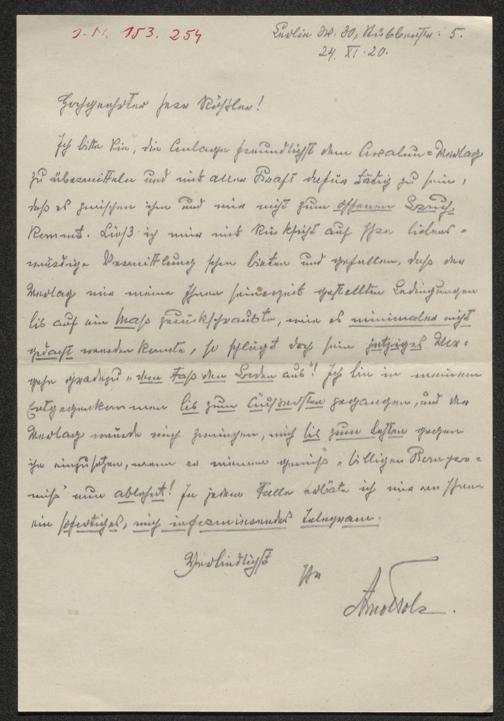 J.N. 153.254
Berlin W. 30, 5.
24. XI. 20.
Hochgeehrter Herr Rößler!
Ich bitte Sie, die Anlage freundlichst dem Avalun-Verlag
zu übermitteln und mit aller Kraft dafür tätig zu sein,
daß es zwischen ihm und mir nicht zum offenen Bruch
kommt. Ließ ich mir mit Rücksicht auf Ihre liebens-
würdige Vermittlung schon bieten und gefallen, daß der
Verlag mir meine Ihnen seinerzeit gestellten Bedingungen
bis auf ein Maß zurückschraubte, wie es minimaler nicht
gedacht werden konnte, so schlägt doch sein jetziges Vor-
gehn gradezu „dem Faß den Boden aus"! Ich bin in meinem
Entgegenkommen bis zum Äußersten gegangen, und der
Verlag würde mich zwingen, mich bis zum Letzten gegen
ihn einzusetzen, wenn er meinen gewiß billigen Kompro-
miß nun ablehnt! In jedem Falle erbäte ich mir von Ihnen
ein sofortiges, mich informierendes Telegramm.
Verbindlichst
Ihr
Arno Holz.